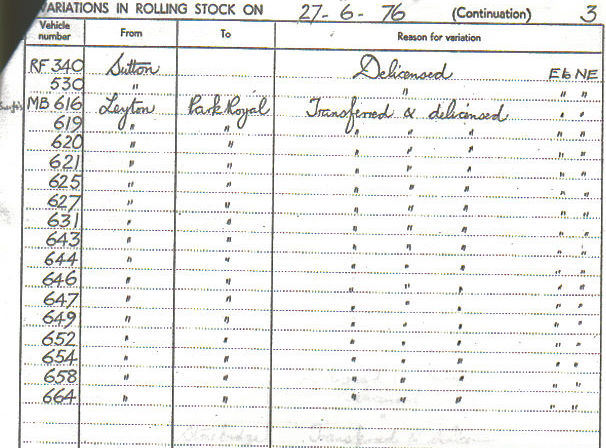 VARIATIONS IN ROLLING STOCK ON 27-6-76 (Continuation) 3
Vehicle number From To Reason for variation
RF 340 Sutton Delicensed Eb NE
530 " " " "
MB 616 Leyton Park Royal Transferred & delicensed " "
619 " " " " " " "
620 " " " " " " "
621 " " " " " " "
625 " " " " " " "
627 " " " " " " "
631 " " " " " " "
643 " " " " " " "
644 " " " " " " "
646 " " " " " " "
647 " " " " " " "
649 " " " " " " "
652 " " " " " " "
654 " " " " " " "
658 " " " " " " "
664 " " " " " " "